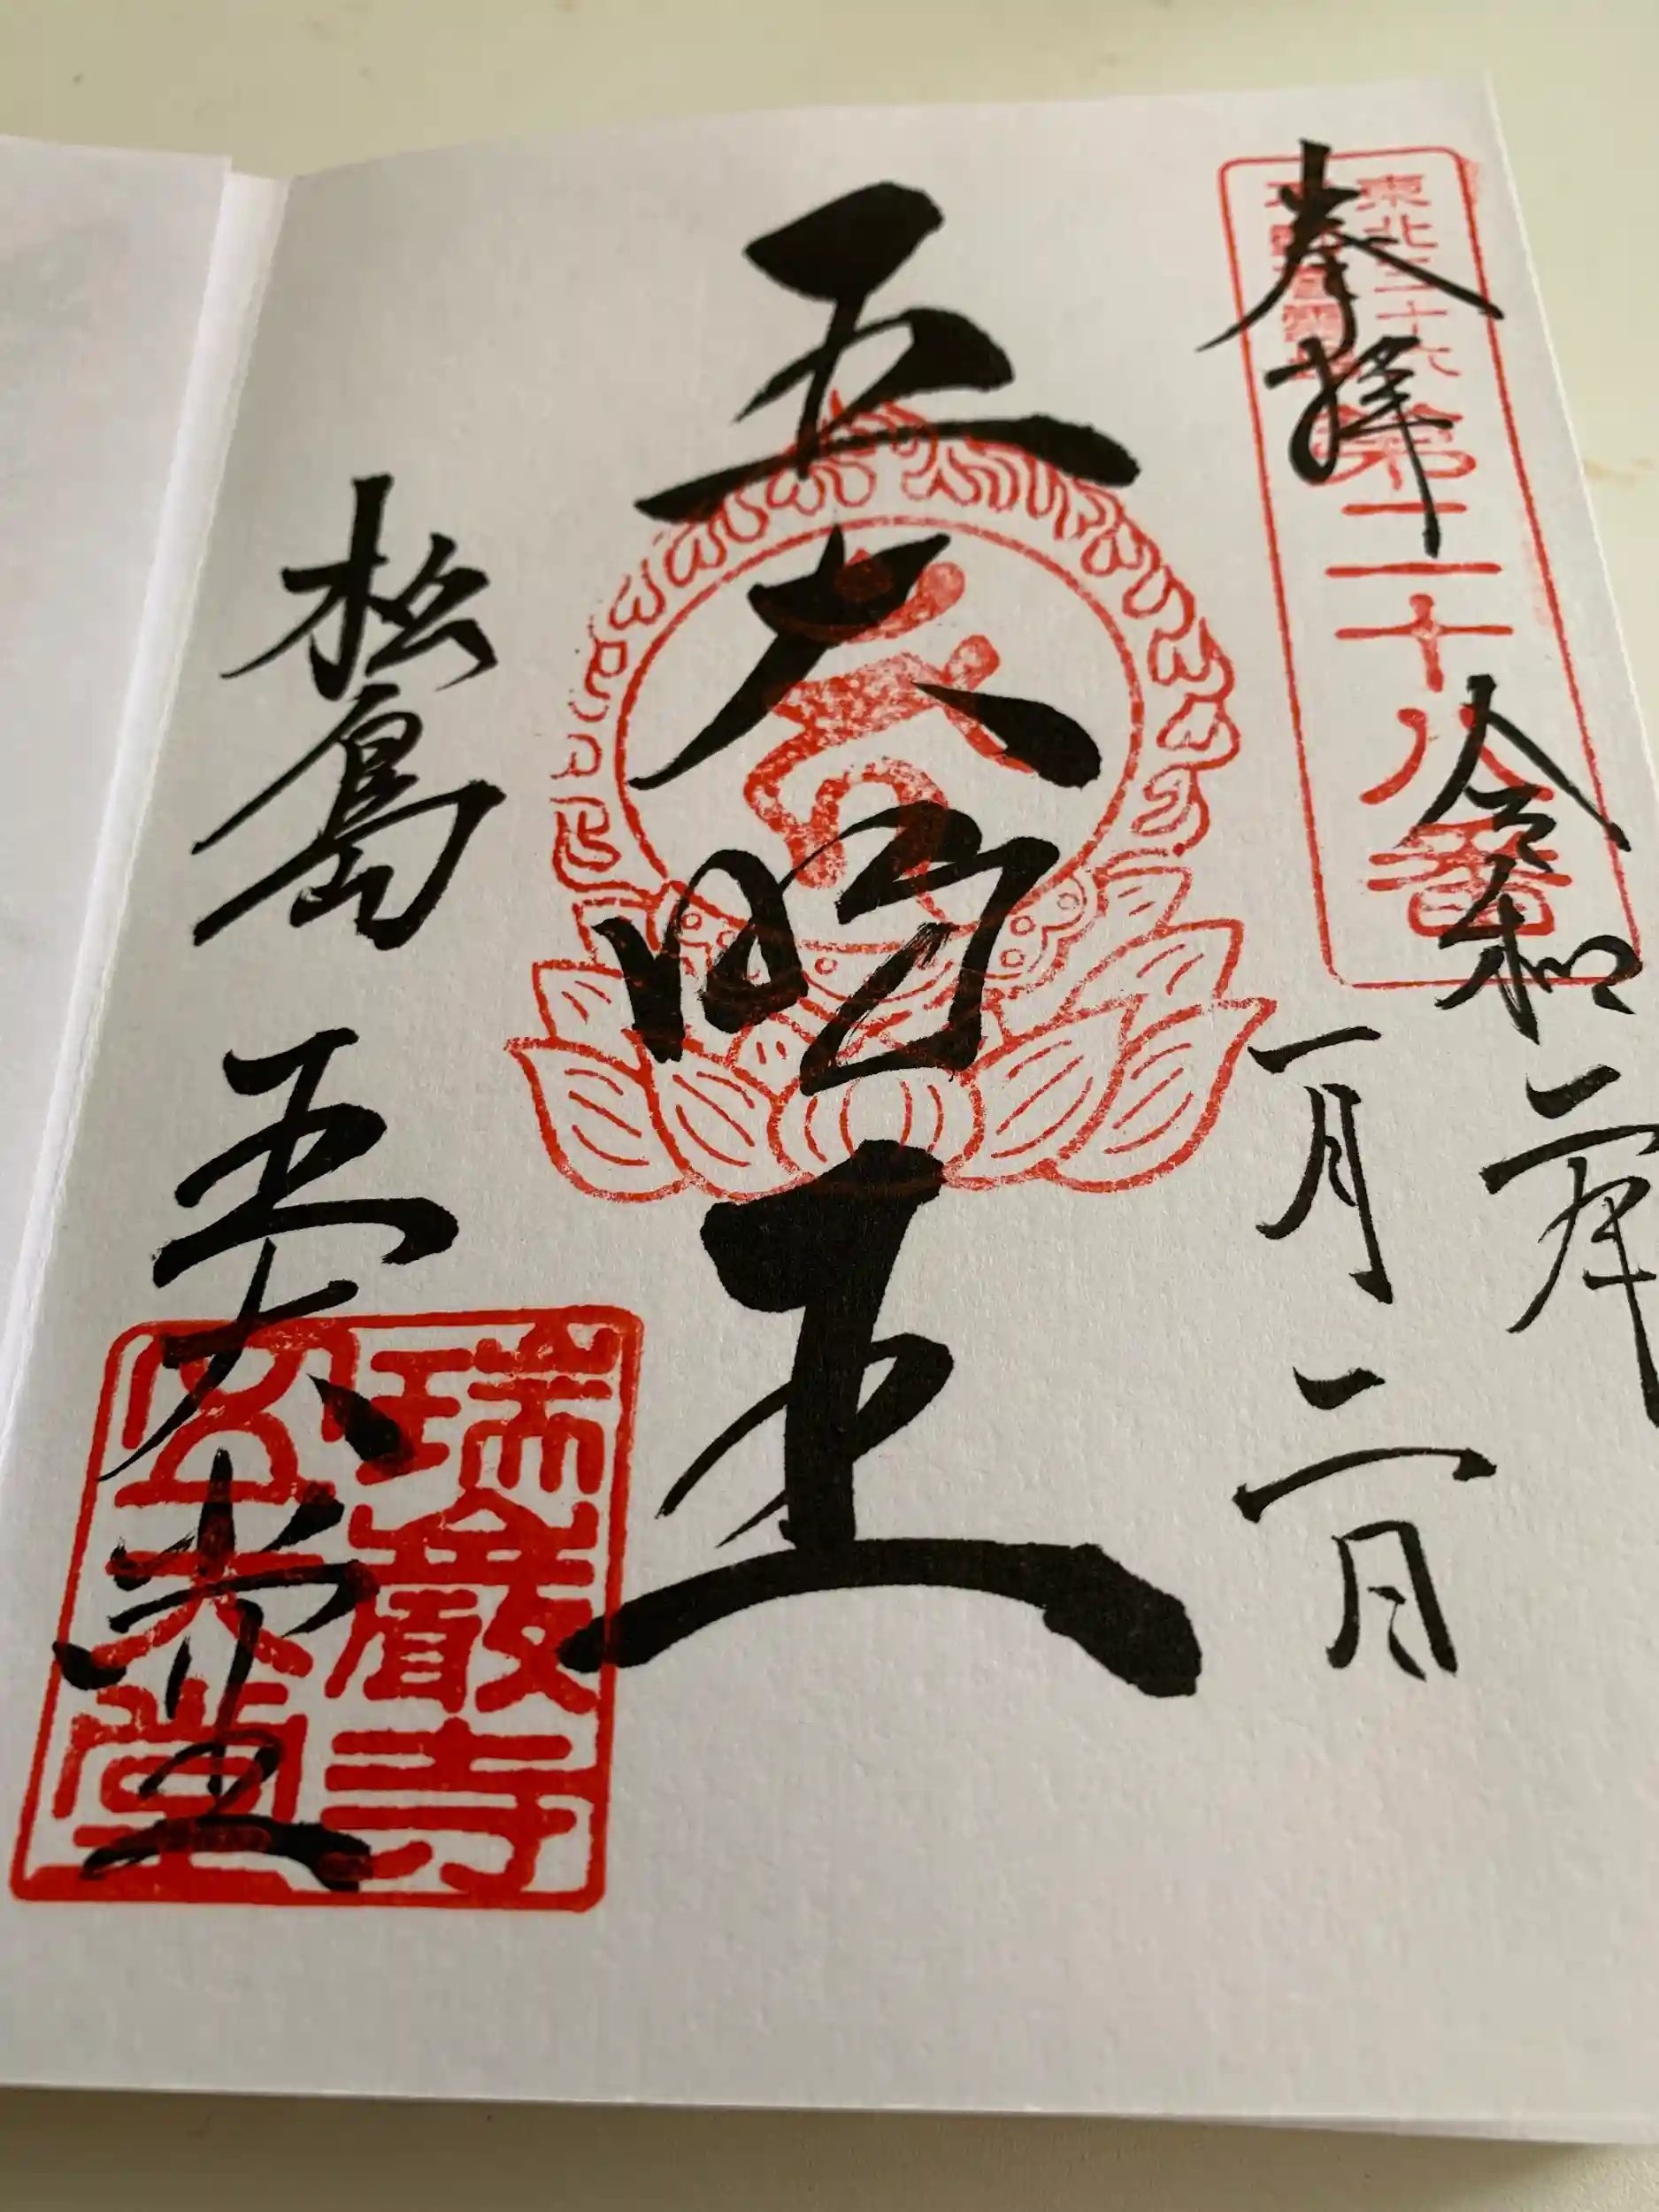 奉拝
東北三十六
第二十八番
令和二年
一月二日
五大明王
松島 五大堂
瑞巌寺
五大堂